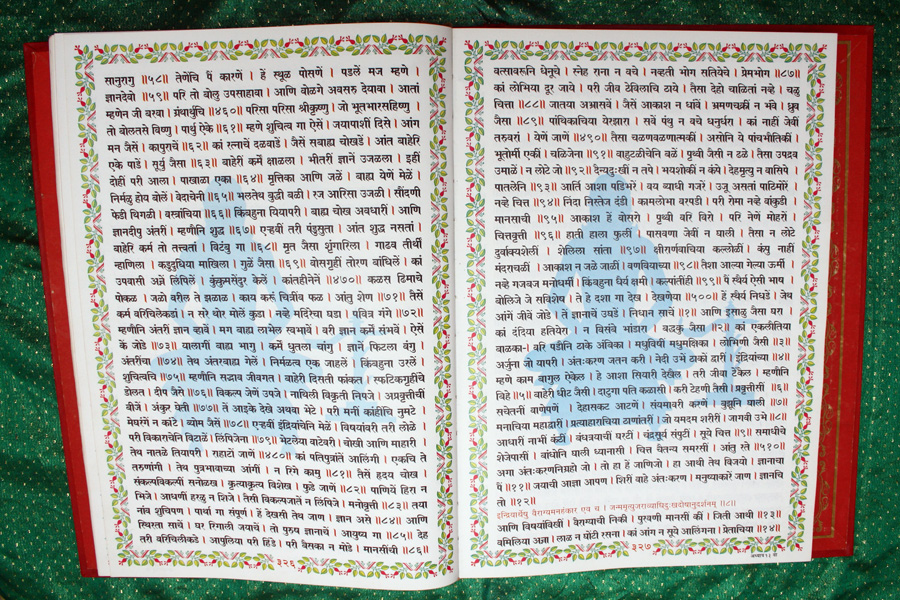 सानुरागु ॥५८॥ तेणेंचि पैं कारणें । हें स्थूळ पोसणें । पडलें मज म्हणे ।
ज्ञानदेवो ॥५९॥ परि तो बोलु उपसाहावा । आणि वोळगे अवसरु देयावा । आतां
म्हणेन जी बरवा । ग्रंथार्थुचि ॥४६०॥ परिसा परिसा श्रीकृष्णु । जो भूतभारसहिष्णु ।
तो बोलतसे विष्णु । पार्थु ऐके ॥६१॥ म्हणे शुचित्व गा ऐसें । जयापाशीं दिसे । आंग
मन जैसें । कापुराचें ॥६२॥ कां रत्नाचें दळवाडें । जैसें सबाह्य चोखडें । आंत बाहेरि
एकें पाडें । सूर्यु जैसा ॥६३॥ बाहेरीं कर्में क्षाळला । भीतरीं ज्ञानें उजळला । इहीं
दोहीं परीं आला । पाखाळा एका ॥६४॥ मृत्तिका आणि जळें । बाह्य येणें मेळें ।
निर्मळु होय बोलें । वेदाचेनी ॥६५॥ भलतेथ बुद्धी बळी । रज आरिसा उजळी । सौंदणी
फेडी थिगळी । वस्त्रांचिया ॥६६॥ किंबहुना यियापरी । बाह्य चोख अवधारीं । आणि
ज्ञानदीपु अंतरीं । म्हणौनि शुद्ध ॥६७॥ एऱ्हवीं तरी पंडुसुता । आंत शुद्ध नसतां ।
बाहेरि कर्म तो तत्त्वतां । विटंबु गा ॥६८॥ मृत जैसा शृंगारिला । गाढव तीर्थीं
न्हाणिला । कडुदुधिया माखिला । गुळें जैसा ॥६९॥ वोसगृहीं तोरण बांधिलें । कां
उपवासी अन्नें लिंपिलें । कुंकुमसेंदुर केलें । कांतहीनेनें ॥४७०॥ कळस ढिमाचे
पोकळ । जळो वरील तें झळाळ । काय करूं चित्रींव फळ । आंतु शेण ॥७१॥ तैसें
कर्म वरिचिलेकडां । न सरे थोर मोलें कुडा । नव्हे मदिरेचा घडा । पवित्र गंगे ॥७२॥
म्हणौनि अंतरीं ज्ञान व्हावें । मग बाह्य लाभेल स्वभावें । वरी ज्ञान कर्में संभवे । ऐसें
कें जोडे ॥७३॥ यालागीं बाह्य भागु । कर्में धुतला चांगु । ज्ञानें फिटला वंगु ।
अंतरींचा ॥७४॥ तेथ अंतरबाह्य गेलें । निर्मळत्व एक जाहलें । किंबहुना उरलें ।
शुचित्वचि ॥७५॥ म्हणौनि सद्भाव जीवगत । बाहेरी दिसती फांकत । स्फटिकगृहींचे
डोलत । दीप जैसे ॥७६॥ विकल्प जेणें उपजे । नाथिली विकृती निपजे । अप्रवृत्तीचीं
बीजें । अंकुर घेती ॥७७॥ तें आइके देखे अथवा भेटे । परी मनीं कांहींचि नुमटे ।
मेघरंगें न कांटे । व्योम जैसें ॥७८॥ एऱ्हवीं इंद्रियांचेनि मेळें । विषयांवरी तरी लोळे ।
परी विकाराचेनि विटाळें । लिंपिजेना ॥७९॥ भेटलेया वाटेवरी । चोखी आणि माहारी ।
तेथ नातळे तियापरी । राहाटों जाणें ॥४८०॥ कां पतिपुत्रांतें आलिंगी । एकचि ते
तरुणांगी । तेथ पुत्रभावाच्या आंगीं । न रिगे कामु ॥८१॥ तैसें हृदय चोख ।
संकल्पविकल्पीं सनोळख । कृत्याकृत्य विशेख । फुडें जाणें ॥८२॥ पाणियें हिरा न
भिजे । आधणीं हरळु न शिजे । तैसी विकल्पजातें न लिंपिजे । मनोवृत्ती ॥८३॥ तया
नांव शुचिपण । पार्था गा संपूर्ण । हें देखसी तेथ जाण । ज्ञान असे ॥८४॥ आणि
स्थिरता साचें । घर रिगाली जयाचें । तो पुरुष ज्ञानाचें । आयुष्य गा ॥८५॥ देह
तरी वरिचिलीकडे । आपुलिया परी हिंडे । परी बैसका न मोडे । मानसींची ॥८६॥
३२६
वत्सावरूनि धेनूचें । स्नेह राना न वचे । नव्हती भोग सतियेचे । प्रेमभोग ॥८७॥
कां लोभिया दूर जाये । परी जीव ठेविलाचि ठाये । तैसा देहो चाळितां नव्हे । चळु
चित्ता ॥८८॥ जातया अभ्रासवें । जैसें आकाश न धांवे । भ्रमणचक्रीं न भंवे । ध्रुव
जैसा ॥८९॥ पांथिकाचिया येरझारा । सवें पंथु न वचे धनुर्धरा । कां नाहीं जेवीं
तरुवरां । येणें जाणें ॥४९०॥ तैसा चळणवळणात्मकीं । असोनि ये पांचभौतिकीं ।
भूतोर्मी एकीं । चळिजेना ॥९१॥ वाहुटळीचेनि बळें । पृथ्वी जैसी न ढळे । तैसा उपद्रव
उमाळें । न लोटे जो ॥९२॥ दैन्यदुःखीं न तपे । भयशोकीं न कंपे । देहमृत्यु न वासिपे
पातलेनि ॥९३॥ आर्ति आशा पडिभरें । वय व्याधी गजरें । उजू असतां पाठिमोरें ।
नव्हे चित्त ॥९४॥ निंदा निस्तेज दंडी । कामलोभा वरपडी । परी रोमा नव्हे वांकुडी ।
मानसाची ॥९५॥ आकाश हें वोसरो । पृथ्वी वरि विरो । परि नेणे मोहरों ।
चित्तवृत्ती ॥९६॥ हाती हाला फुलीं । पासवणा जेवीं न घाली । तैसा न लोटे
दुर्वाक्यशेलीं । शेलिला सांता ॥९७॥ क्षीरार्णवाचिया कल्लोळीं । कंपु नाहीं
मंदराचळीं । आकाश न जळे जाळीं । वणवियाच्या ॥९८॥ तैशा आल्या गेल्या ऊर्मी ।
नव्हे गजबज मनोधर्मीं । किंबहुना धैर्य क्षमी । कल्पांतींही ॥९९॥ पैं स्थैर्य ऐसी भाष ।
बोलिजे जे सविशेष । ते हे दशा गा देख । देखणेया ॥५००॥ हें स्थैर्य निधडें । जेथ
आंगें जीवें जोडे । तें ज्ञानाचें उघडें । निधान साचें ॥१॥ आणि इसाळु जैसा घरा ।
कां दंदिया हतियेरा । न विसंबे भांडारा । बद्धकु जैसा ॥२॥ कां एकलौतिया
बाळका- । वरि पडौनि ठाके अंबिका । मधुविषीं मधुमक्षिका । लोभिणी जैसी ॥३॥
अर्जुना जो यापरी । अंतःकरण जतन करी । नेदी उभें ठाकों द्वारीं । इंद्रियांच्या ॥४॥
म्हणे काम बागुल ऐकेल । हे आशा सियारी देखैल । तरी जीवा टेंकैल । म्हणौनि
बिहे ॥५॥ बाहेरी धीट जैसी । दाटुगा पति कळासी । करी टेहणी तैसी । प्रवृत्तीसीं ॥६॥
सचेतनीं वाणेपणें । देहासकट आटणें । संयमावरीं करणें । बुझूनि घाली ॥७॥
मनाचिया महाद्वारीं । प्रत्याहाराचिया ठाणांतरीं । जो यमदम शरीरीं । जागवी उभे ॥८॥
आधारीं नाभीं कंठीं । बंधत्रयाचीं घरटीं । चंद्रसूर्य संपुटीं । सुये चित्त ॥९॥ समाधीचे
शेजेपासीं । बांधोनि घाली ध्यानासी । चित्त चैतन्य समरसीं । आंतु रते ॥५१०॥
अगा अंतःकरणनिग्रहो जो । तो हा हें जाणिजो । हा आथी तेथ विजयो । ज्ञानाचा
पैं ॥११॥ जयाची आज्ञा आपण । शिरीं वाहे अंतःकरण । मनुष्याकारें जाण । ज्ञानचि
तो ॥१२॥
इन्द्रियार्थेषु वैराग्यमनहंकार एव च । जन्ममृत्युजराव्याधिदुःखदोषानुदर्शनम् ॥८॥
आणि विषयांविखीं । वैराग्याची निकी । पुरवणी मानसीं कीं । जिती आथी ॥१३॥
वमिलिया अन्ना । लाळ न घोंटी रसना । कां आंग न सूये आलिंगना । प्रेताचिया ॥१४॥
३२७
अध्याय १३ वा